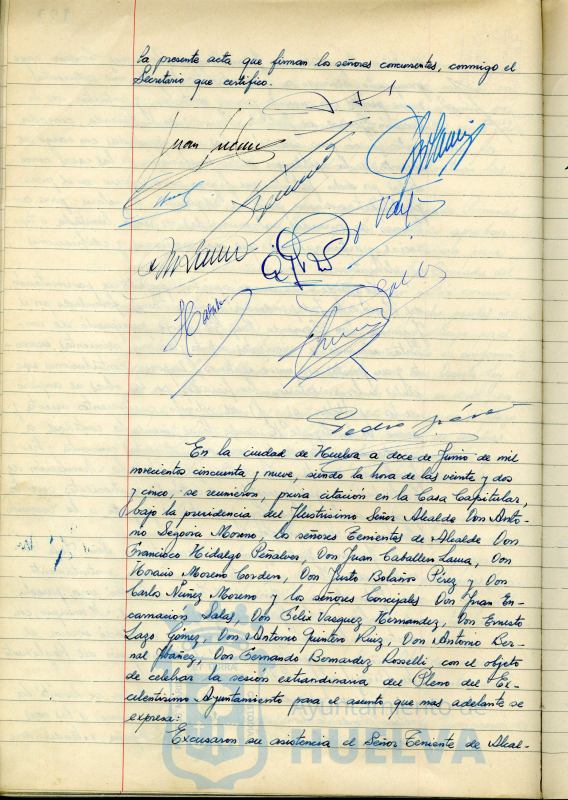 la presente acta que firman los señores concurrentes, conmigo el
Secretario que certifico.
Pedro
En la ciudad de Huelva a doce de Junio de mil
novecientos cincuenta y nueve, siendo la hora de las veinte y dos
y cinco, se reunieron, previa citación en la Casa Capitular,
bajo la presidencia del Ilustrísimo Señor Alcalde Don Anto-
nio Segovia Moreno, los señores Tenientes de Alcalde Don
Francisco Hidalgo Peñalver, Don Juan Caballero Lama, Don
Horacio Moreno Cordero, Don Justo Bolaños Pérez y Don
Carlos Núñez Moreno y los señores Concejales Don Juan En-
carnacion Salas, Don Félix Vasquez Hernandez, Don Ernesto
Lazo Gómez, Don Antonio Quintero Ruiz, Don Antonio Ber-
nal Ibáñez, Don Fernando Bernardez Rosselli, con el objeto
de celebrar la sesión extraordinaria del Pleno del Ex-
celentísimo Ayuntamiento para el asunto que mas adelante se
expresa:
Excusaron su asistencia el Señor Teniente de Alcal-
Ayuntamiento de
HUELVA